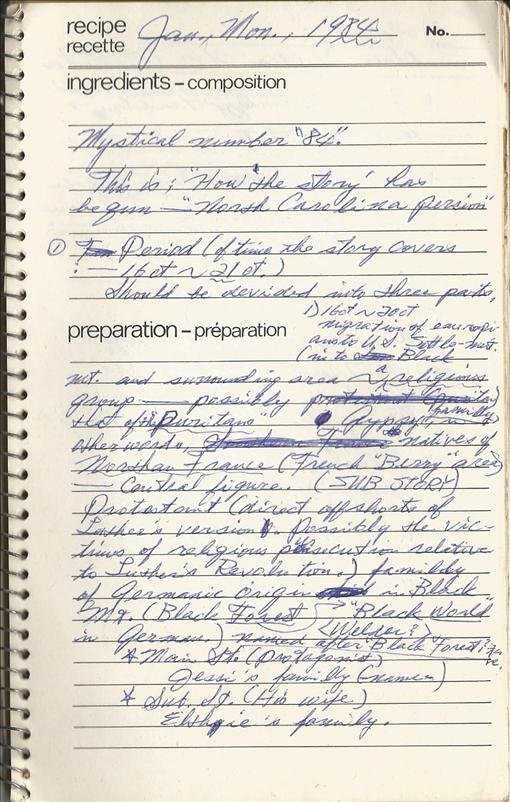 recipe
recette
Jan., Mon., 1984
No.
ingredients – composition
Mystical number "84".
This is; "How 'the story' has
begun — "North Carolina persion"
① Period (of time the story covers
: — 16ct ~ 21ct.)
Should be devided into three parts,
1) 16ct ~ 20ct
migration of earropi
ans to U.S. Settle-mnt.
(into Black
preparation – préparation
mt. and surrounding area — a religious
group — possibly protestant (puritan)
that of the "Puritans" Gypsy (familly) in
other words, natives of
Northan France (French "Berry" area)
— Central figure. (SUB STORY)
Protostant (direct offshorts of
Luther's version). Possibly the vic-
tims of religious persecution relative
to Luther's Revolution.) familly
of Germanic Origin in Black
Mt. (Black Forest "Black World"
in German.) named after "Black Forest"
(Welder?)
* Main St. (Protagonist)
Jessi's familly (name)
* Sub. St. (His wife)
's family.